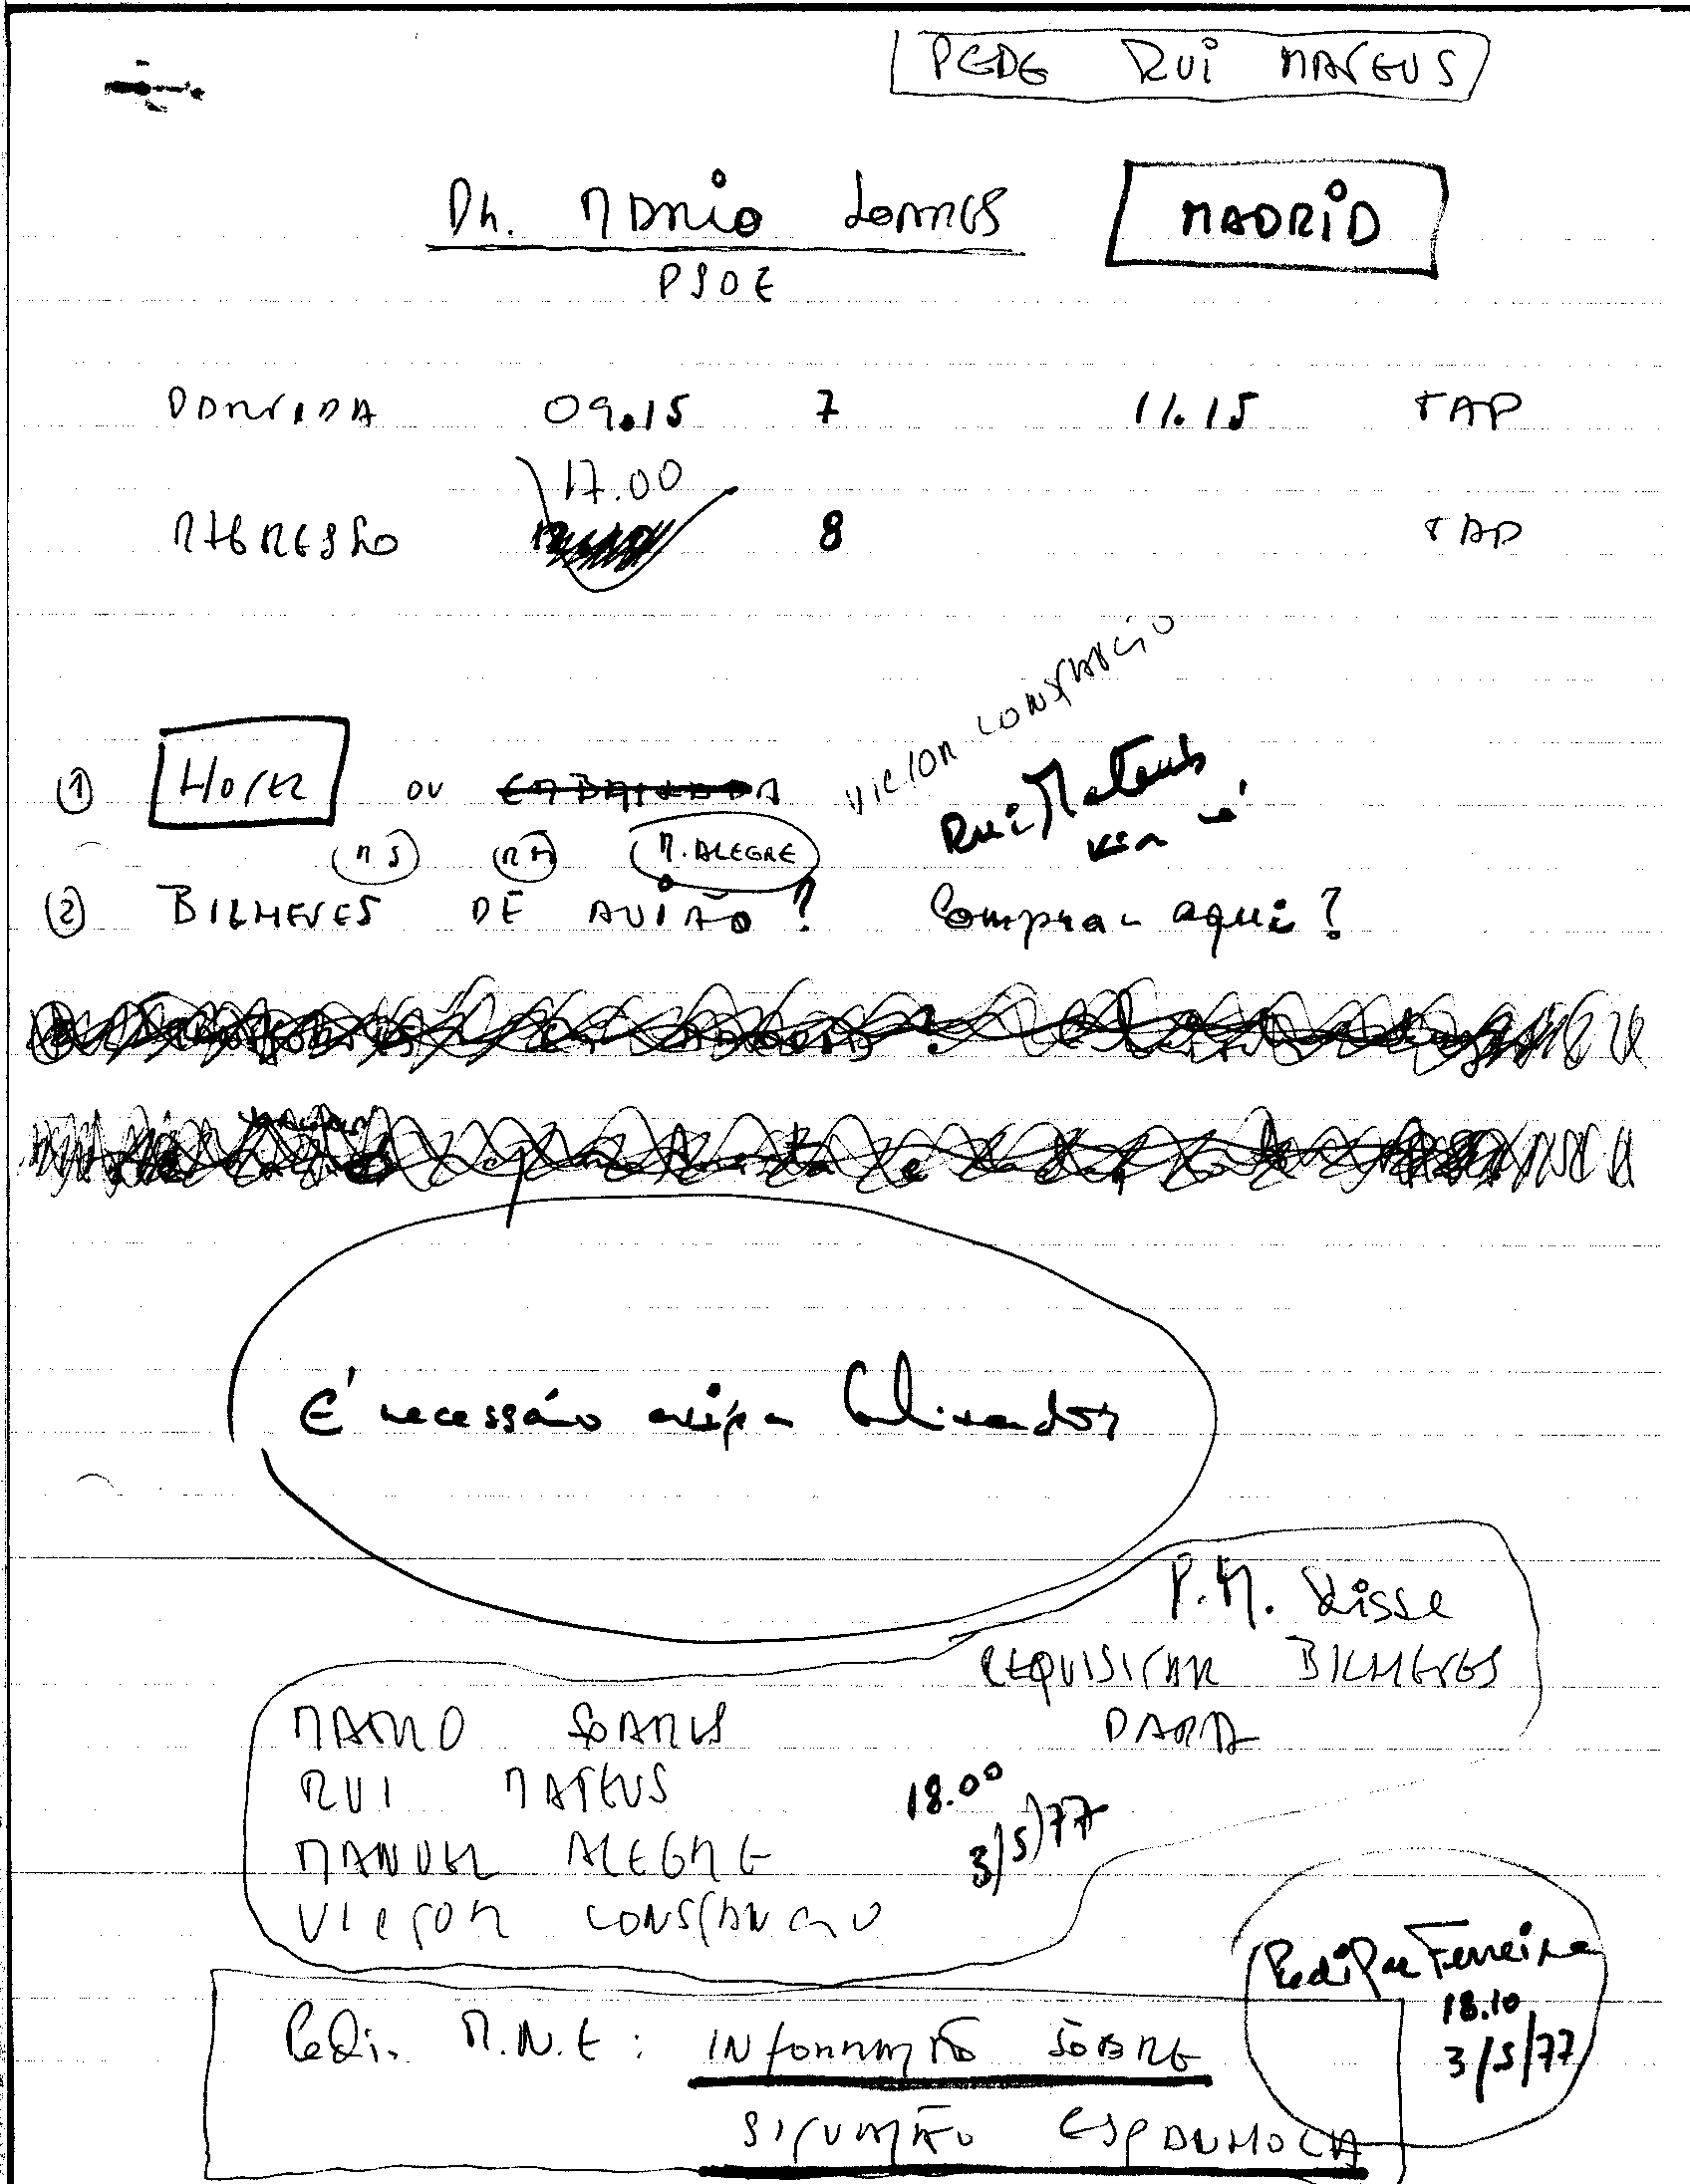 PEDE RUI MATEUS
Dr. MÁRIO SOARES MADRID
PSOE
PARTIDA 09.15 7 11.15 TAP
17.00
REGRESSO 8 TAP
VICTOR CONSTANCIO
① HOTEL OU EMBAIXADA Rui Mateus
MS RM M. ALEGRE
② BILHETES DE AVIÃO? Comprar aqui?
É necessário
P.M. disse
REQUISITAR BILHETES
PARA
MARIO SOARES
RUI MATEUS 18.00
MANUEL ALEGRE 3/5/77
VICTOR CONSTANCIO
Ferreira
18.10
3/5/77
Pedir M.N.E: INFORMAÇÃO SOBRE
SITUAÇÃO ESPANHOLA